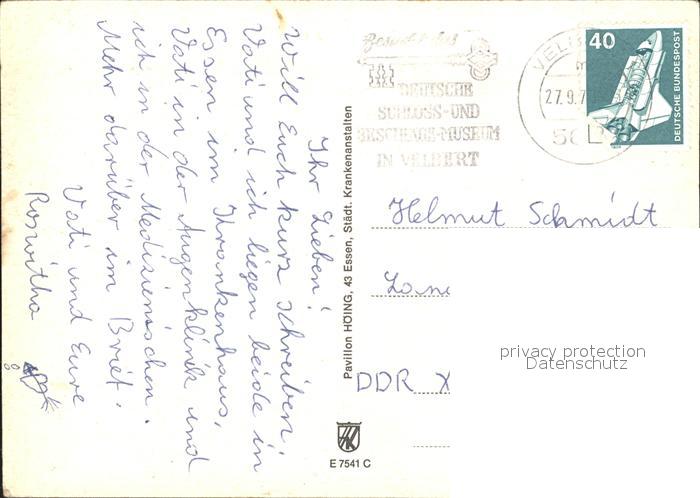 Ihr Lieben!
Will Euch kurz schreiben.
Vati und ich liegen beide in
Essen im Krankenhaus,
Vati in der Augenklinik und
ich in der Medizinischen.
Mehr darüber im Brief.
Vati und Eure
Roswitha
Pavillon HÖING, 43 Essen, Städt. Krankenanstalten
E 7541 C
Besucht das
DEUTSCHE
SCHLOSS-UND
BESCHLÄGE-MUSEUM
IN VELBERT
VELB
27.9.7
40
DEUTSCHE BUNDESPOST
Helmut Schmidt
DDR X
privacy protection
Datenschutz